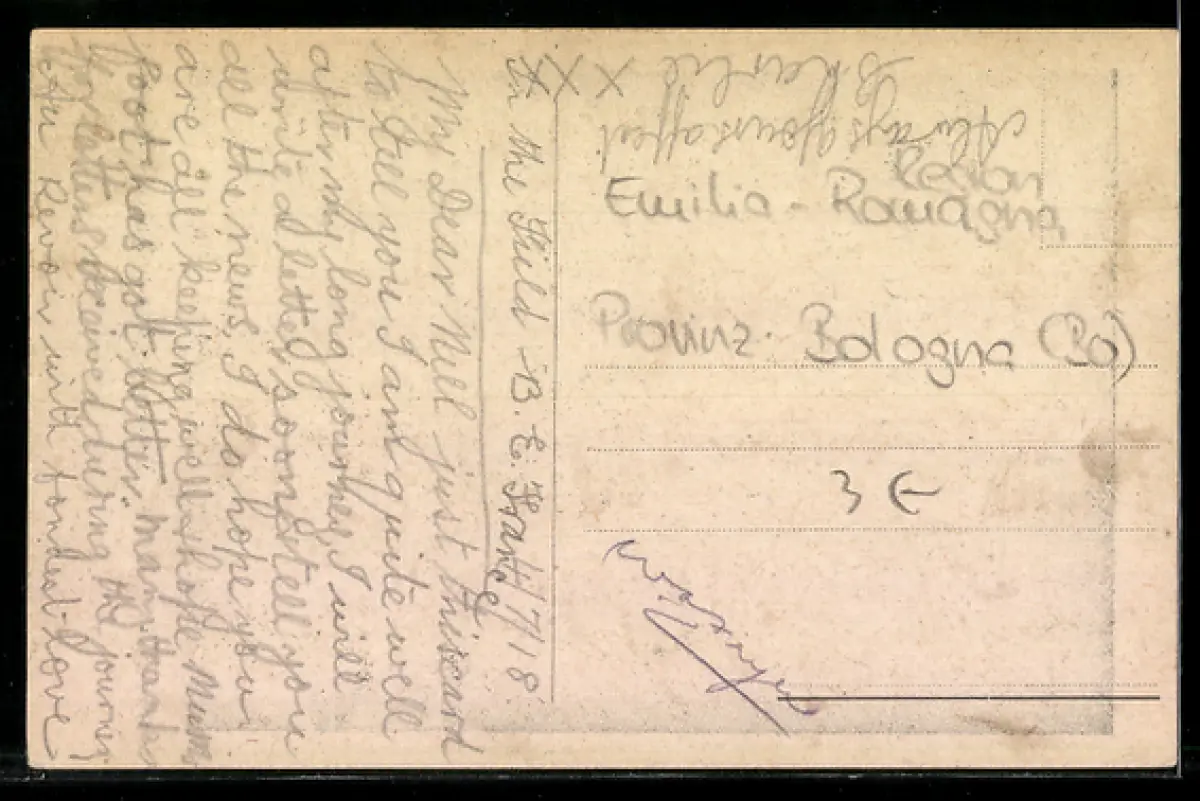 In the Field B. E. France
4/7/18.
My Dear Nell just this card
to tell you I am quite well
after my long journey, I will
write a letter soon & tell you
all the news, I do hope you
are all keeping well & hope Mums
foot has got better. many thanks
for letters received during the journey
Au Revoir with fondest love
Always yours affect
Charlie
X X X X
Region
Emilia - Romagna
Provinz. Bologna (Bo)
3 €